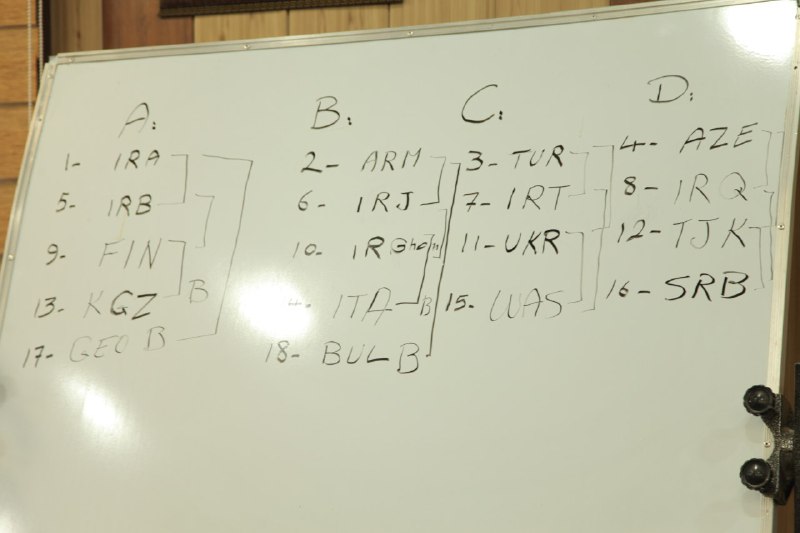 A:
1- IRA
5- IRB
9- FIN
13- KGZ B
17- GEO B
B:
2- ARM
6- IRJ
10- IR
ITA B
18- BULB
C:
3- TUR
7- IRT
11- UKR
15-
D:
4- AZE
8- IRQ
12- TJK
16- SRB